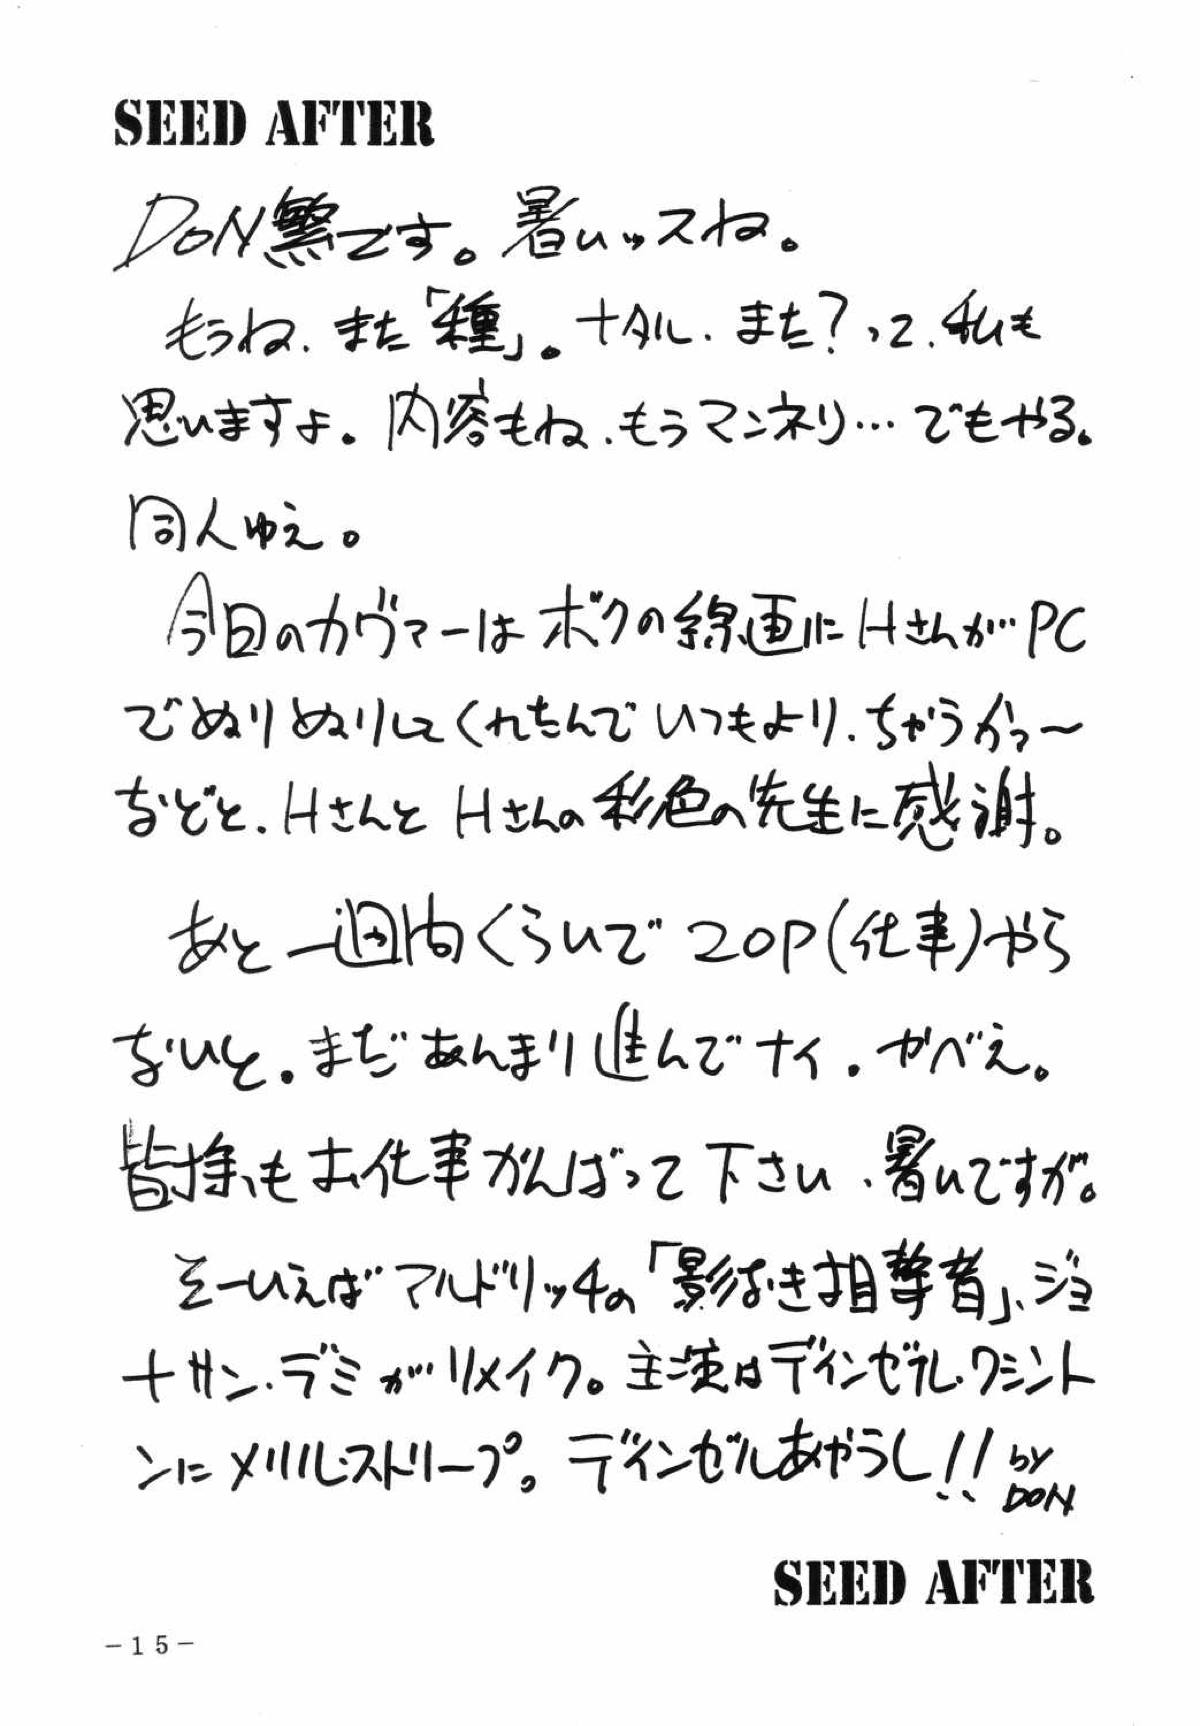 SEED AFTER
DON繁です。暑いッスね。
もうね、また「種」。ナタル、また?って、私も
思いますよ。内容もね、もうマンネリ…でもやる。
同人ゆえ。
今回のカヴァーはボクの線画にHさんがPC
でぬりぬりしてくれたんでいつもより、ちゃうかァ〜
などと、HさんとHさんの彩色の先生に感謝。
あと一週間くらいで20P(仕事)やら
ないと。まだあんまり進んでナイ。やべえ。
皆様もお仕事がんばって下さい、暑いですが。
そーいえばマルドリッチの「影なき狙撃者」、ジョ
ナサン・デミがリメイク。主演はディンゼル・ワシント
ンにメリル・ストリープ。ディンゼルあやうし!! by
DON
SEED AFTER
-15-